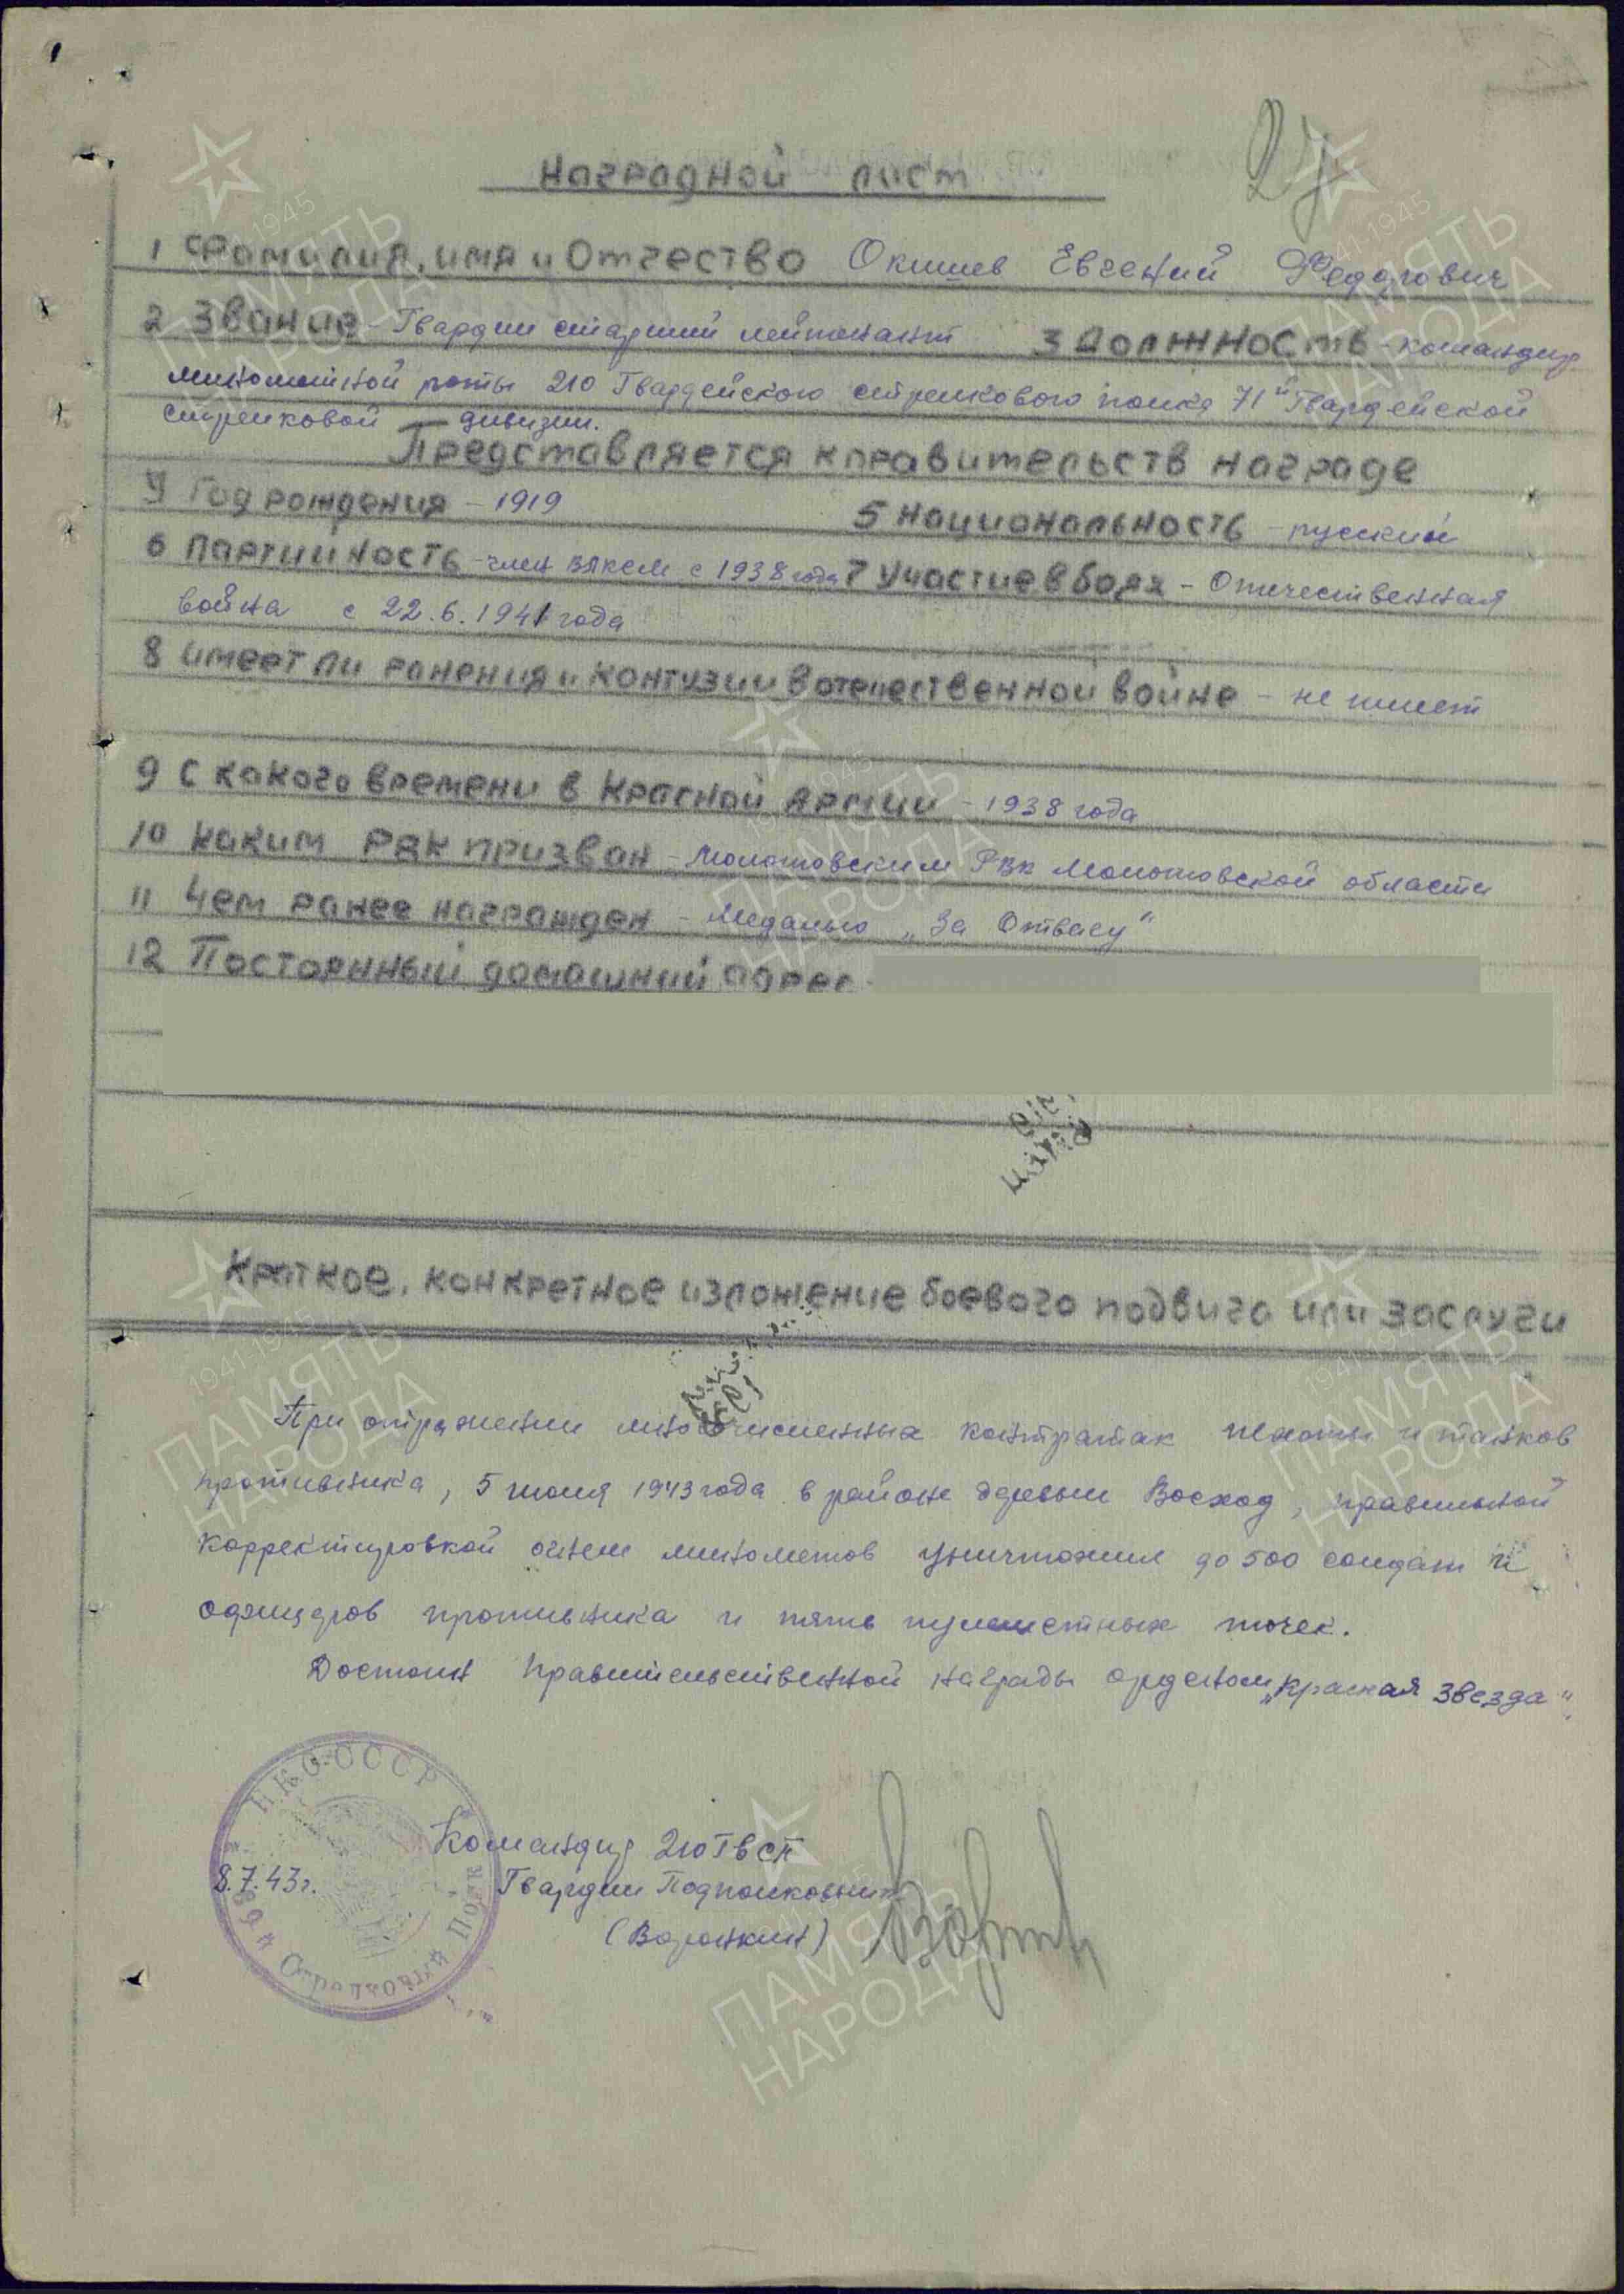 Наградной лист
1 Фамилия, имя и Отчество Окишев Евгений Федорович
2 Звание - Гвардии старший лейтенант 3 Должность - командир
минометной роты 210 Гвардейского стрелкового полка 71й Гвардейской
стрелковой дивизии.
Представляется к правительств награде
4 Год рождения - 1919 5 Национальность - русский
6 Партийность - член ВЛКСМ с 1938 года 7 Участие в боях - Отечественная
война с 22.6.1941 года
8 имеет ли ранения и контузии в отечественной войне - не имеет
9 С какого времени в Красной Армии - 1938 года
10 Каким РВК призван - Молотовским РВК Молотовской области
11 Чем ранее награжден - Медалью „За Отвагу"
12 Постоянный домашний адрес
Краткое, конкретное изложение боевого подвига или заслуги
При отражении многочисленных контратак пехоты и танков
противника, 5 июля 1943 года в районе деревни Восход, правильной
корректировкой огнем минометов уничтожил до 500 солдат и
офицеров противника и пять пулеметных точек.
Достоин правительственной награды орденом „Красная Звезда".
НКО СССР
Командир 210 Гв СП
8.7.43г. Гвардии Подполковник
(Воронкин)
1941-1945
ПАМЯТЬ
НАРОДА